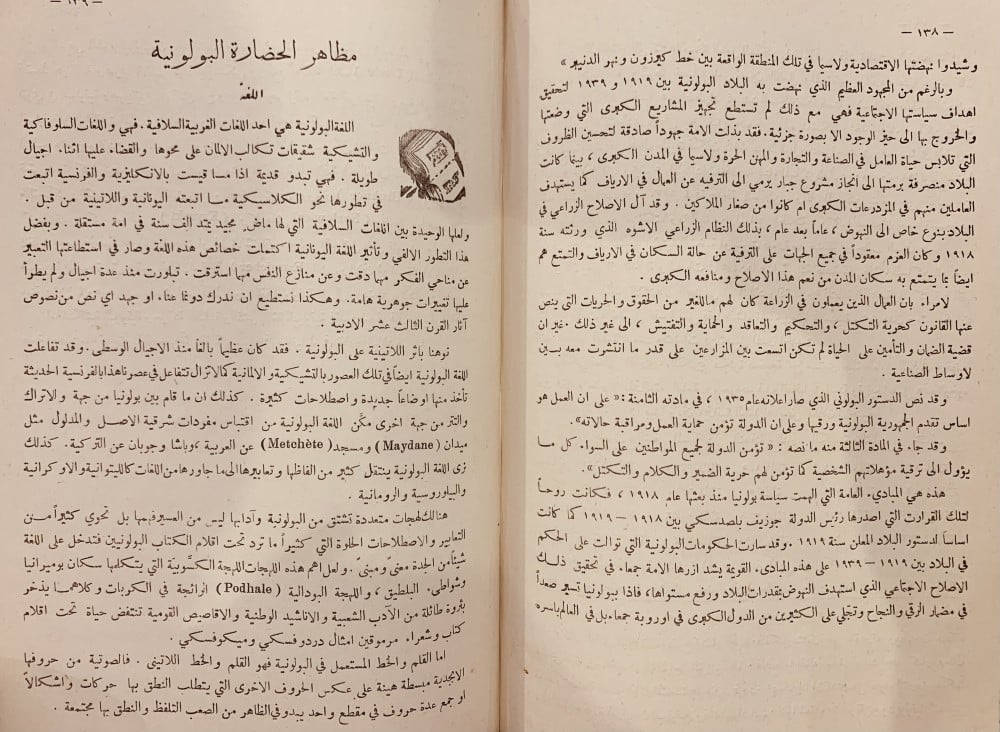 — ١٣٨ —
وشيدوا نهضتها الاقتصادية ولاسيما في تلك المنطقة الواقعة بين خط كيرزون ونهر الدنيبر»
وبالرغم من المجهود العظيم الذي نهضت به البلاد البولونية بين ١٩١٩ و ١٩٣٩ لتحقيق
اهداف سياستها الاجتماعية فهي مع ذلك لم تستطع تجهيز المشاريع الكبرى التي وضعتها
والخروج بها الى حيز الوجود الا بصورة جزئية. فقد بذلت الامة جهوداً صادقة لتحسين الظروف
التي تلابس حياة العامل في الصناعة والتجارة والمهن الحرة ولاسيما في المدن الكبرى ، بينما كانت
البلاد منصرفة برمتها الى انجاز مشروع جبار يرمي الى الترفيه عن العمال في الارياف كما يستهدف
العاملين منهم في المزدرعات الكبرى ام كانوا من صغار الملاكين . وقد آل الاصلاح الزراعي في
البلاد بنوع خاص الى النهوض ، عاماً بعد عام ، بذلك النظام الزراعي الاشوه الذي ورثته سنة
١٩١٨ وكان العزم معقوداً في جميع الجهات على الترقية عن حالة السكان في الارياف والتمتع هم
ايضاً بما يتمتع به سكان المدن من نعم هذا الاصلاح ومنافعه الكبرى .
لامراء بان العمال الذين يعملون في الزراعة كان لهم ما للغير من الحقوق والحريات التي ينص
عنها القانون كحرية التكتل ، والتحكيم والتعاقد والحماية والتفتيش ، الى غير ذلك . غير ان
قضية الضمان والتأمين على الحياة لم تكن اتسعت بين المزارعين على قدر ما انتشرت معه بين
لاوساط الصناعية .
وقد نص الدستور البولوني الذي صار اعلانه عام ١٩٣٥ ، في مادته الثامنة : « على ان العمل هو
اساس تقدم الجمهورية البولونية ورقيها وعلى ان الدولة تؤمن حماية العمل ومراقبة حالاته» .
وقد جاء في المادة الثالثة منه ما نصه : « تؤمن الدولة لجميع المواطنين على السواء كل ما
يؤول الى ترقية مؤهلاتهم الشخصية كما تؤمن لهم حرية الضمير والكلام والتكتل» .
هذه هي المبادىء العامة التي الهمت سياسة بولونيا منذ بعثها عام ١٩١٨ ، فكانت روحاً
لتلك القرارت التي اصدرها رئيس الدولة جوزيف بلصدسكي بين ١٩١٨ – ١٩١٩ كما كانت
اساساً لدستور البلاد المعلن سنة ١٩١٩ . وقد سارت الحكومات البولونية التي توالت على الحكم
في البلاد بين ١٩١٩ – ١٩٣٩ على هذه المبادىء القويمة يشد ازرها الامة جمعاء في تحقيق ذلك
الاصلاح الاجتماعي الذي استهدف النهوض بمقدرات البلاد ورفع مستواها، فاذا ببولونيا تسير صعداً
في مضمار الرقي والنجاح وتجلي على الكثيرين من الدول الكبرى في اوروبة جمعاء بل في العالم باسره
— ١٣٩ —
مظاهر الحضارة البولونية
اللغة
اللغة البولونية هي احد اللغات الغربية السلافية . فهي واللغات السلوفاكية
والتشيكية شقيقات تكالب الالمان على محوها والقضاء عليها اثناء اجيال
طويلة . فهي تبدو قديمة اذا ما قيست بالانكليزية والفرنسية اتبعت
في تطورها نحو الكلاسيكية ما اتبعته اليونانية واللاتينية من قبل .
ولعلها الوحيدة بين اللغات السلافية التي لها ماض مجيد يمتد الف سنة في امة مستقلة . وبفضل
هذا التطور الالفي وتأثير اللغة اليونانية اكتملت خصائص هذه اللغة وصار في استطاعتها التعبير
عن مناحي الفكر مهما دقت وعن منازع النفس مهما استرقت . تبلورت منذ عدة اجيال ولم يطرأ
عليها تغييرات جوهرية هامة . وهكذا نستطيع ان ندرك دونما عناء او جهد اي نص من نصوص
آثار القرن الثالث عشر الادبية .
نوهنا باثر اللاتينية على البولونية . فقد كان عظيماً بالغاً منذ الاجيال الوسطى . وقد تفاعلت
اللغة البولونية ايضاً في تلك العصور بالتشيكية والالمانية كما لا تزال تتفاعل في عصرنا هذا بالفرنسية الحديثة
تأخذ منها اوضاعاً جديدة و اصطلاحات كثيرة . كذلك ان ما قام بين بولونيا من جهة والاتراك
والتتر من جهة اخرى مكّن اللغة البولونية من اقتباس مفردات شرقية الاصل والمدلول مثل
ميدان (Maydane) ومسجد (Metchète) عن العربية ، وباشا وجوبان عن التركية . كذلك
نرى اللغة البولونية ينتقل كثير من الفاظها وتعابيرها الى ما جاورها من اللغات كالليتوانية والاوكرانية
والبياوروسية والرومانية .
هنالك لهجات متعددة تشتق من البولونية وآدابها ليس من العسير فهمها بل تحوي كثيراً من
التعابير والاصطلاحات الحلوة التي كثيراً ما ترد تحت اقلام الكتاب البولونيين فتدخل على اللغة
شيئاً من الجدة معنى ومبنى . ولعل اهم هذه اللهجات اللهجة الكشوبية التي يتكلمها سكان بوميرانيا
وشواطىء البلطيق ، واللهجة البودالية (Podhale) الرائجة في الكربات وكلاهما يذخر
بثروة طائلة من الآدب الشعبية والاناشيد الوطنية والاقاصيص القومية تنتفض حياة تحت اقلام
كتاب وشعراء مرموقين امثال دردوفسكي وميكوفسكي .
اما القلم والخط المستعمل في البولونية فهو القلم والخط اللاتيني . فالصوتية من حروفها
الابجدية مبسطة هينة على عكس الحروف الاخرى التي يتطلب النطق بها حركات واشكالاً
او جمع عدة حروف في مقطع واحد يبدو في الظاهر من الصعب التلفظ والنطق بها مجتمعة .